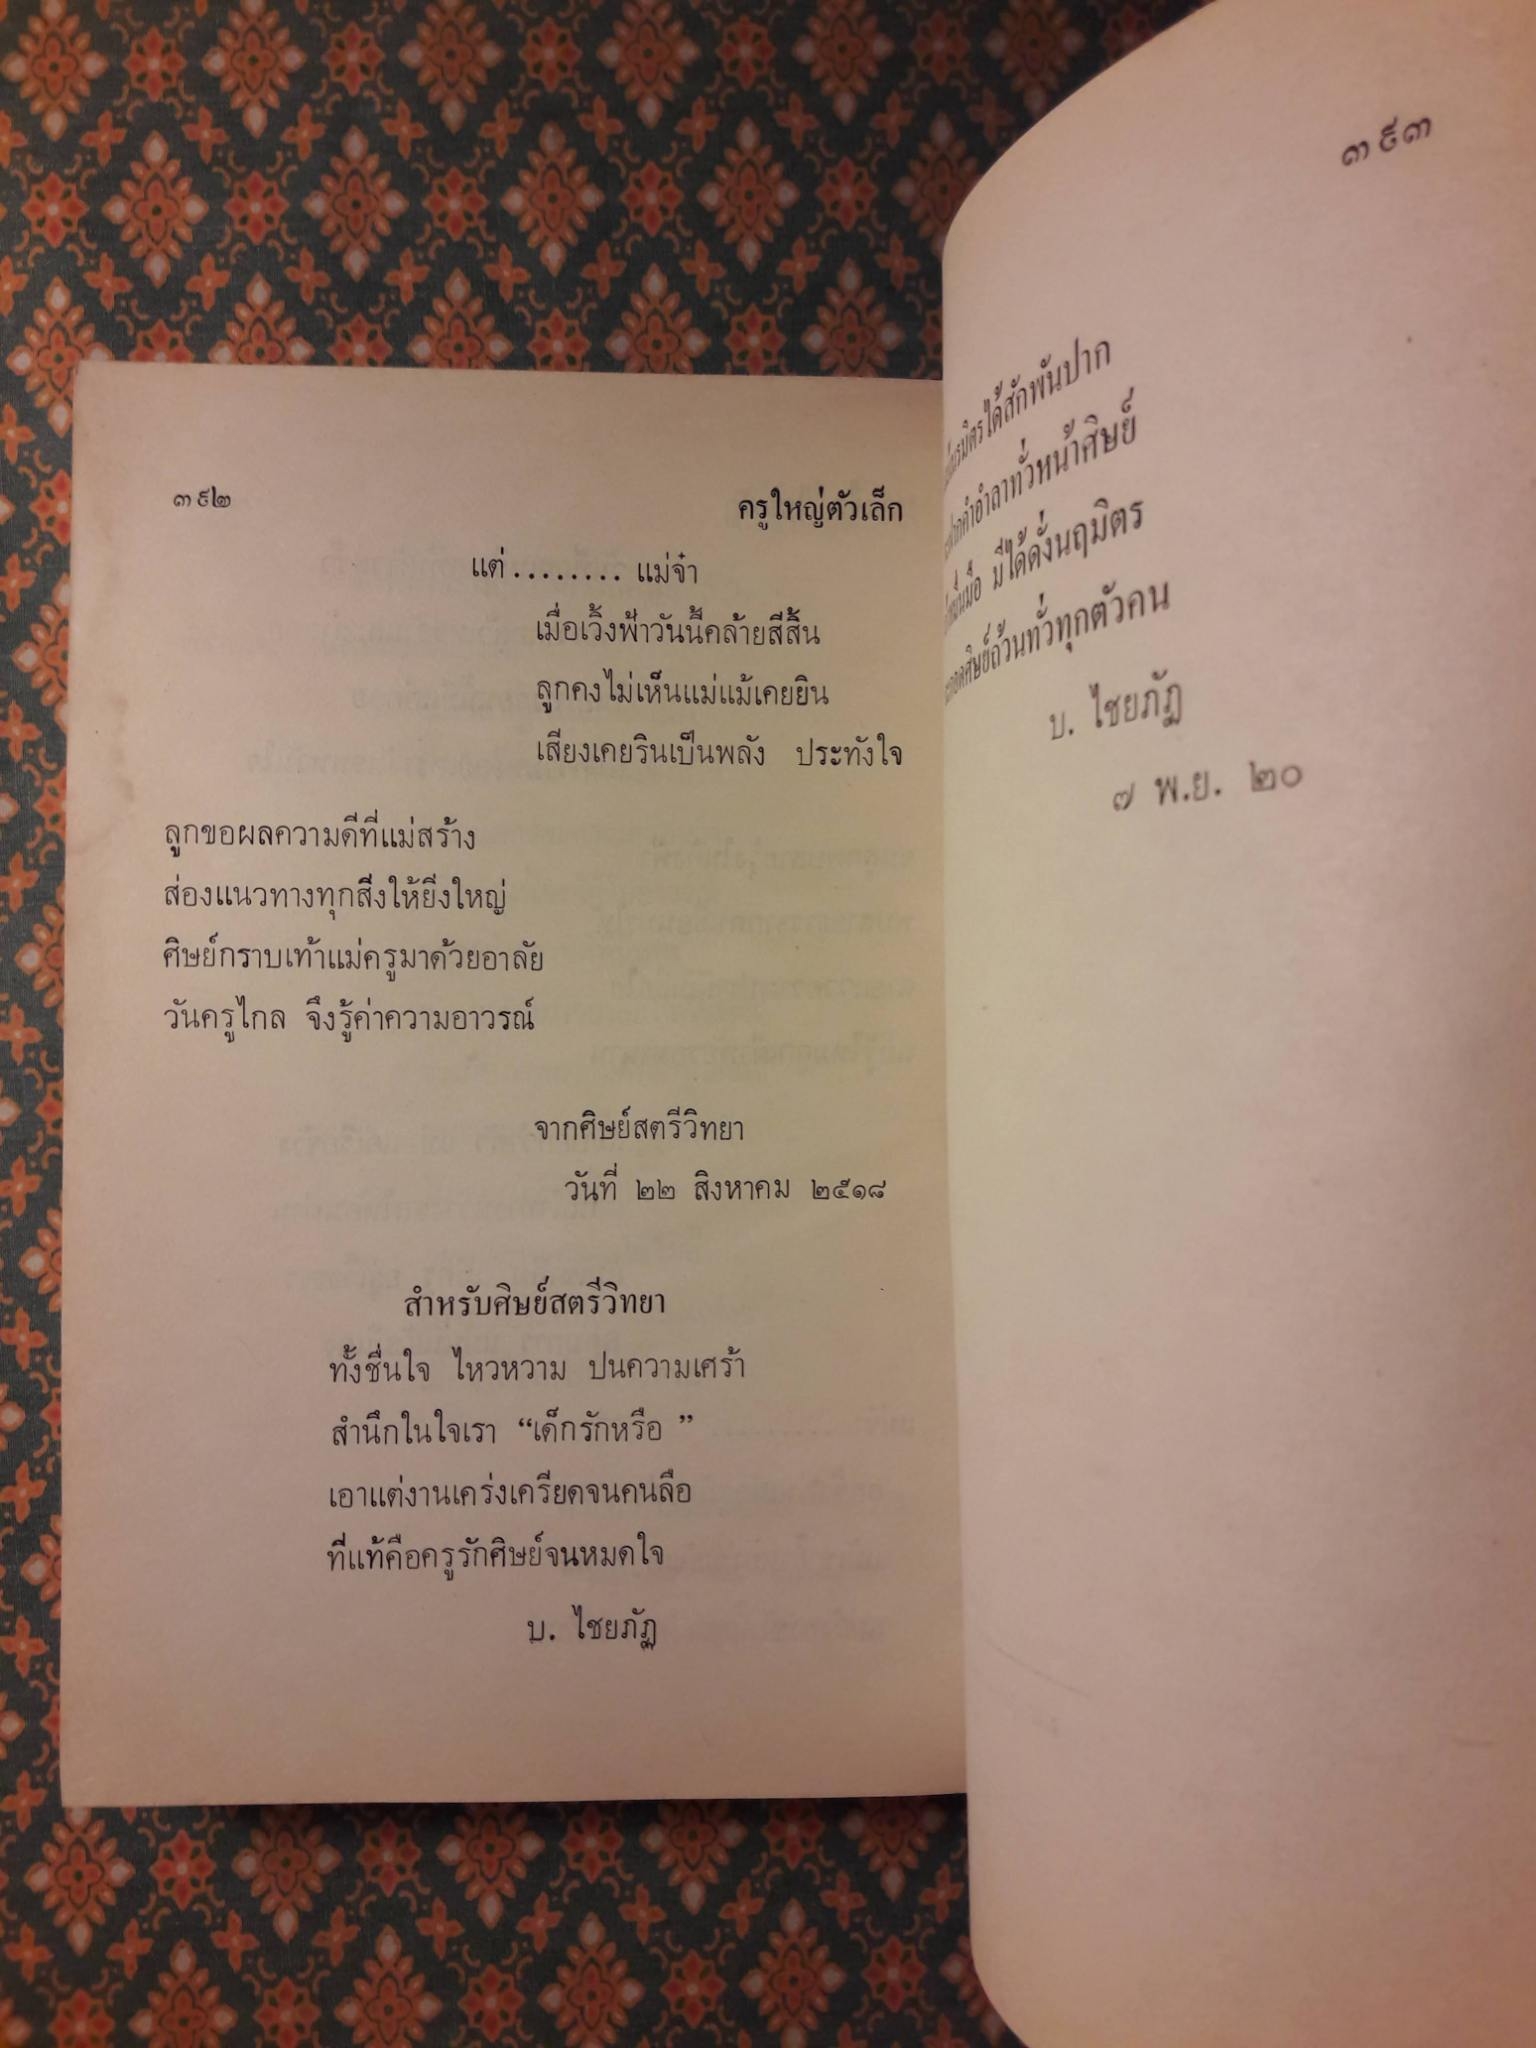 ๓๙๒
ครูใหญ่ตัวเล็ก
แต่ ........ แม่จ๋า
เมื่อเวิ้งฟ้าวันนี้คล้ายสีสิ้น
ลูกคงไม่เห็นแม่แม้เคยยิน
เสียงเคยรินเป็นพลัง ประทังใจ
ลูกขอผลความดีที่แม่สร้าง
ส่องแนวทางทุกสิ่งให้ยิ่งใหญ่
ศิษย์กราบเท้าแม่ครูมาด้วยอาลัย
วันครูไกล จึงรู้ค่าความอาวรณ์
จากศิษย์สตรีวิทยา
วันที่ ๒๒ สิงหาคม ๒๕๑๘
สำหรับศิษย์สตรีวิทยา
ทั้งชื่นใจ ไหวหวาม ปนความเศร้า
สำนึกในใจเรา “เด็กรักหรือ ”
เอาแต่งานเคร่งเครียดจนคนลือ
ที่แท้คือครูรักศิษย์จนหมดใจ
บ. ไชยภัฏ
๓๙๓
ได้สักพันปาก
คำอำลาทั่วหน้าศิษย์
มีได้ดั่งนฤมิตร
ศิษย์ถ้วนทั่วทุกตัวคน
บ. ไชยภัฏ
๗ พ.ย. ๒๐